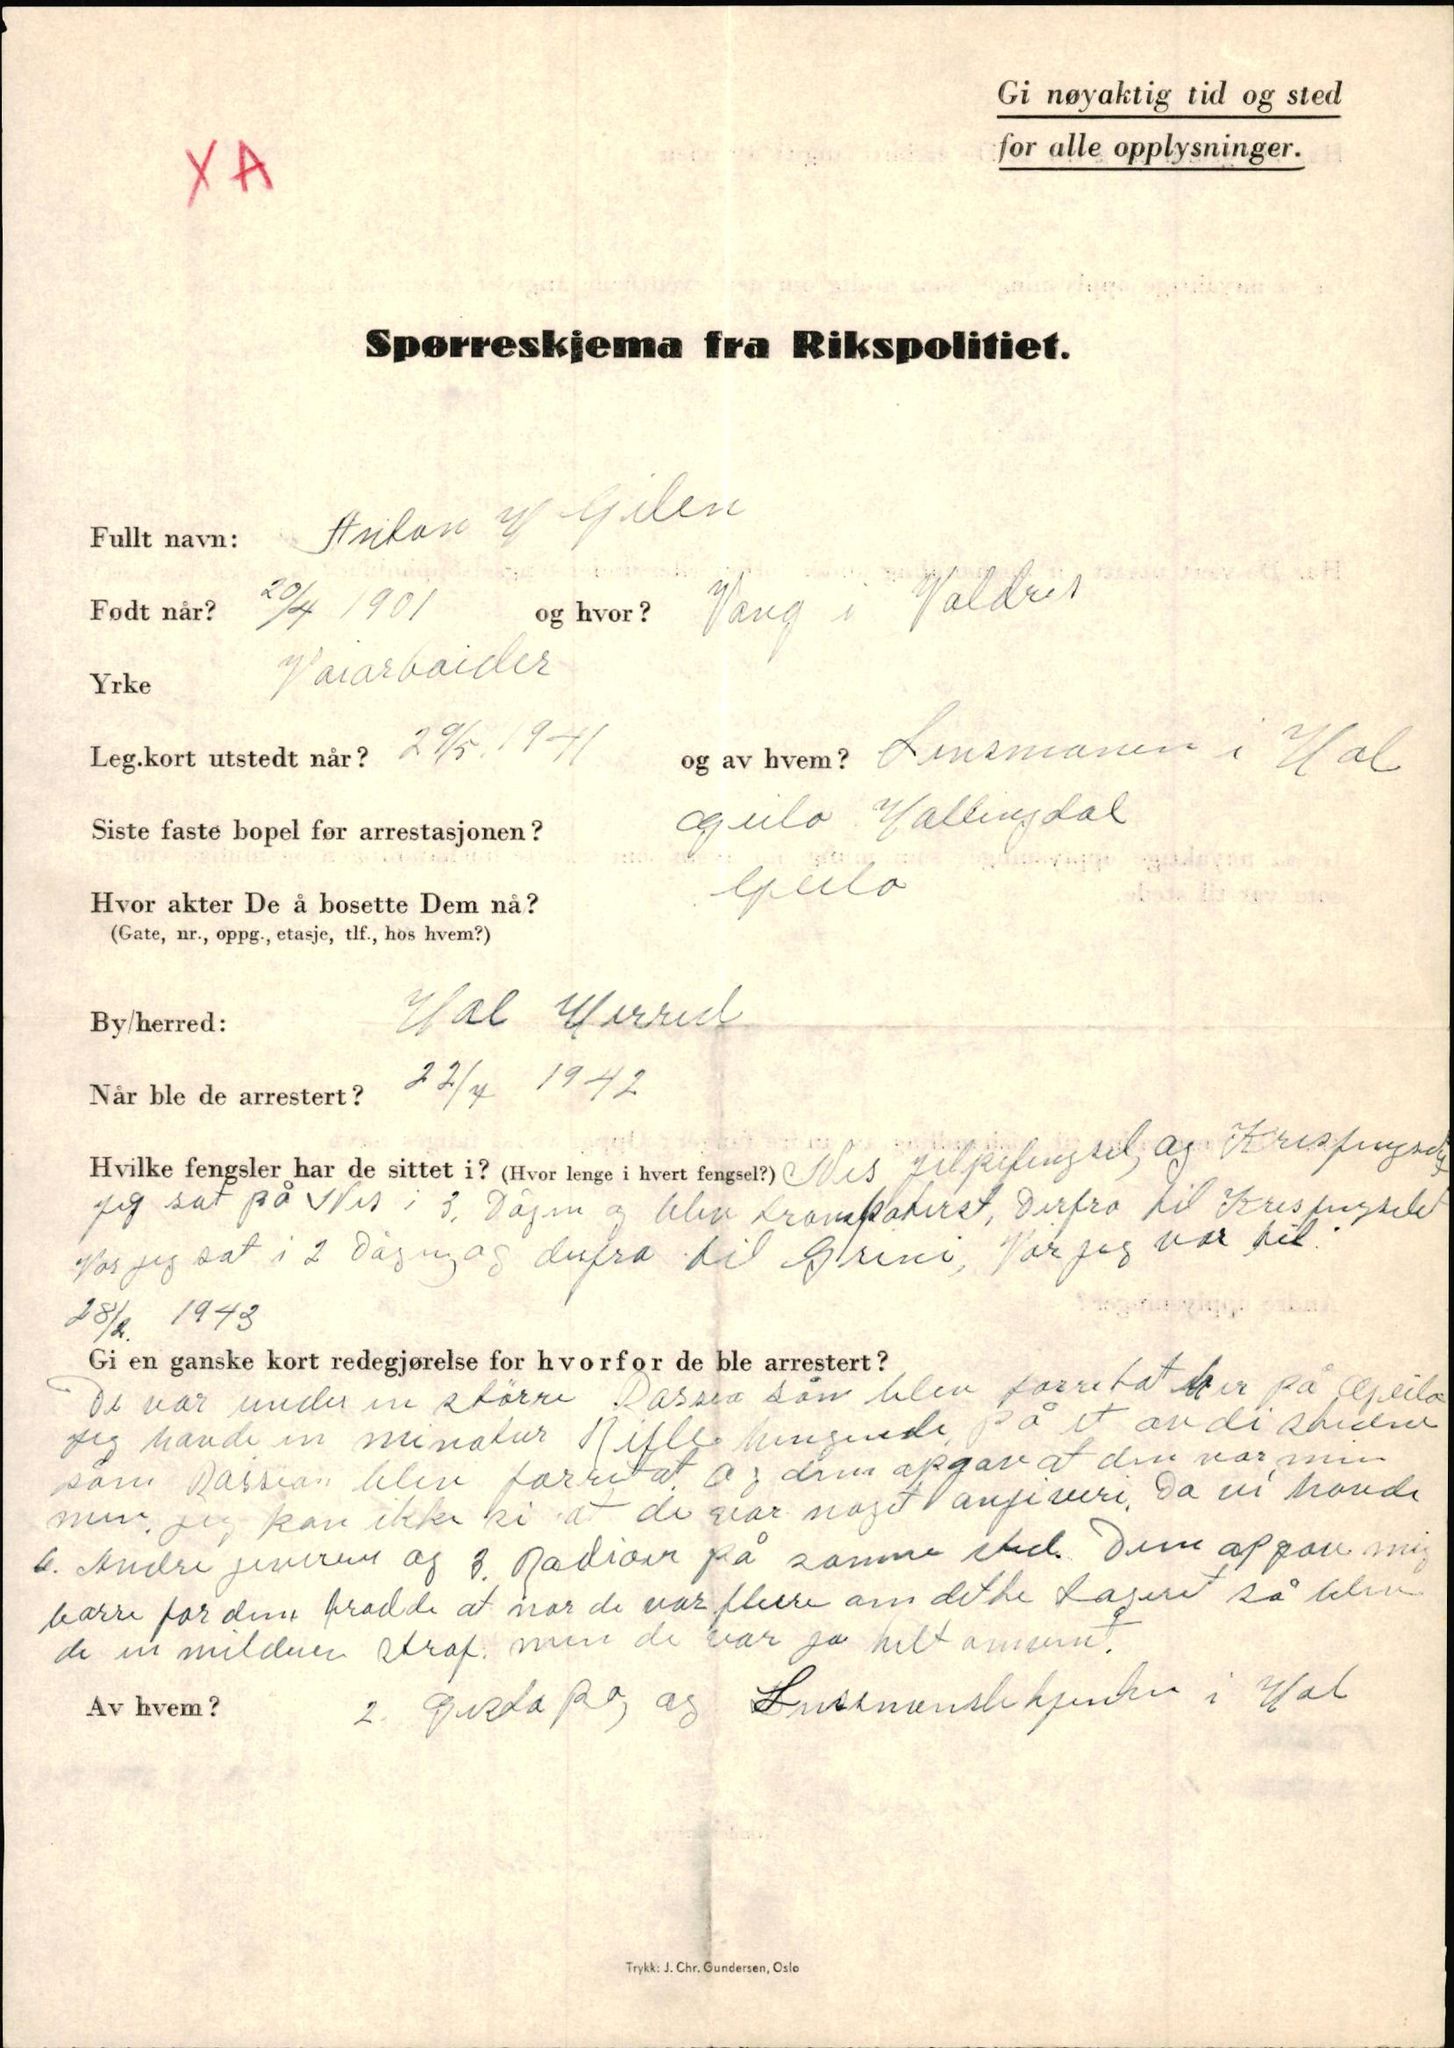 Gi nøyaktig tid og sted
for alle opplysninger.
XA
Spørreskjema fra Rikspolitiet.
Fullt navn: Anton H Gilen
Født når? 20/4 1901 og hvor? Vang i Valdres
Yrke Vaiarbaider
Leg.kort utstedt når? 29/5. 1941 og av hvem? Lensmanen i Hol
Siste faste bopel før arrestasjonen? Geilo Hallingdal
Hvor akter De å bosette Dem nå? Geilo
(Gate, nr., oppg., etasje, tlf., hos hvem?)
By/herred: Hol Herred
Når ble de arrestert? 22/4 1942
Hvilke fengsler har de sittet i? (Hvor lenge i hvert fengsel?) Nes og
jeg sat på Nes i 3. Dågen og blev derfra til Kresfengselet
Vor jeg sat i 2 Dågn, og derfra til Grini, Vor jeg var til
28/2. 1943
Gi en ganske kort redegjørelse for hvorfor de ble arrestert?
De var under en større Rassia som blev forretat her på Geilo
jeg havde en minatur Rifle hengende på et av di stedene
som Rassian blev forretat og dem apgav at den var min
men jeg kan ikke si at de var noget angiveri. Da vi havde
6. Andre geverer og 3. Radioer på samme sted. Dem apgav mig
barre for dem trodde at nor de var flere om dette Lageret så blev
de en mildere straf. men de var jo helt omvent.
Av hvem? 2. Gestapo, og i Hol
Trykk: J. Chr. Gundersen, Oslo